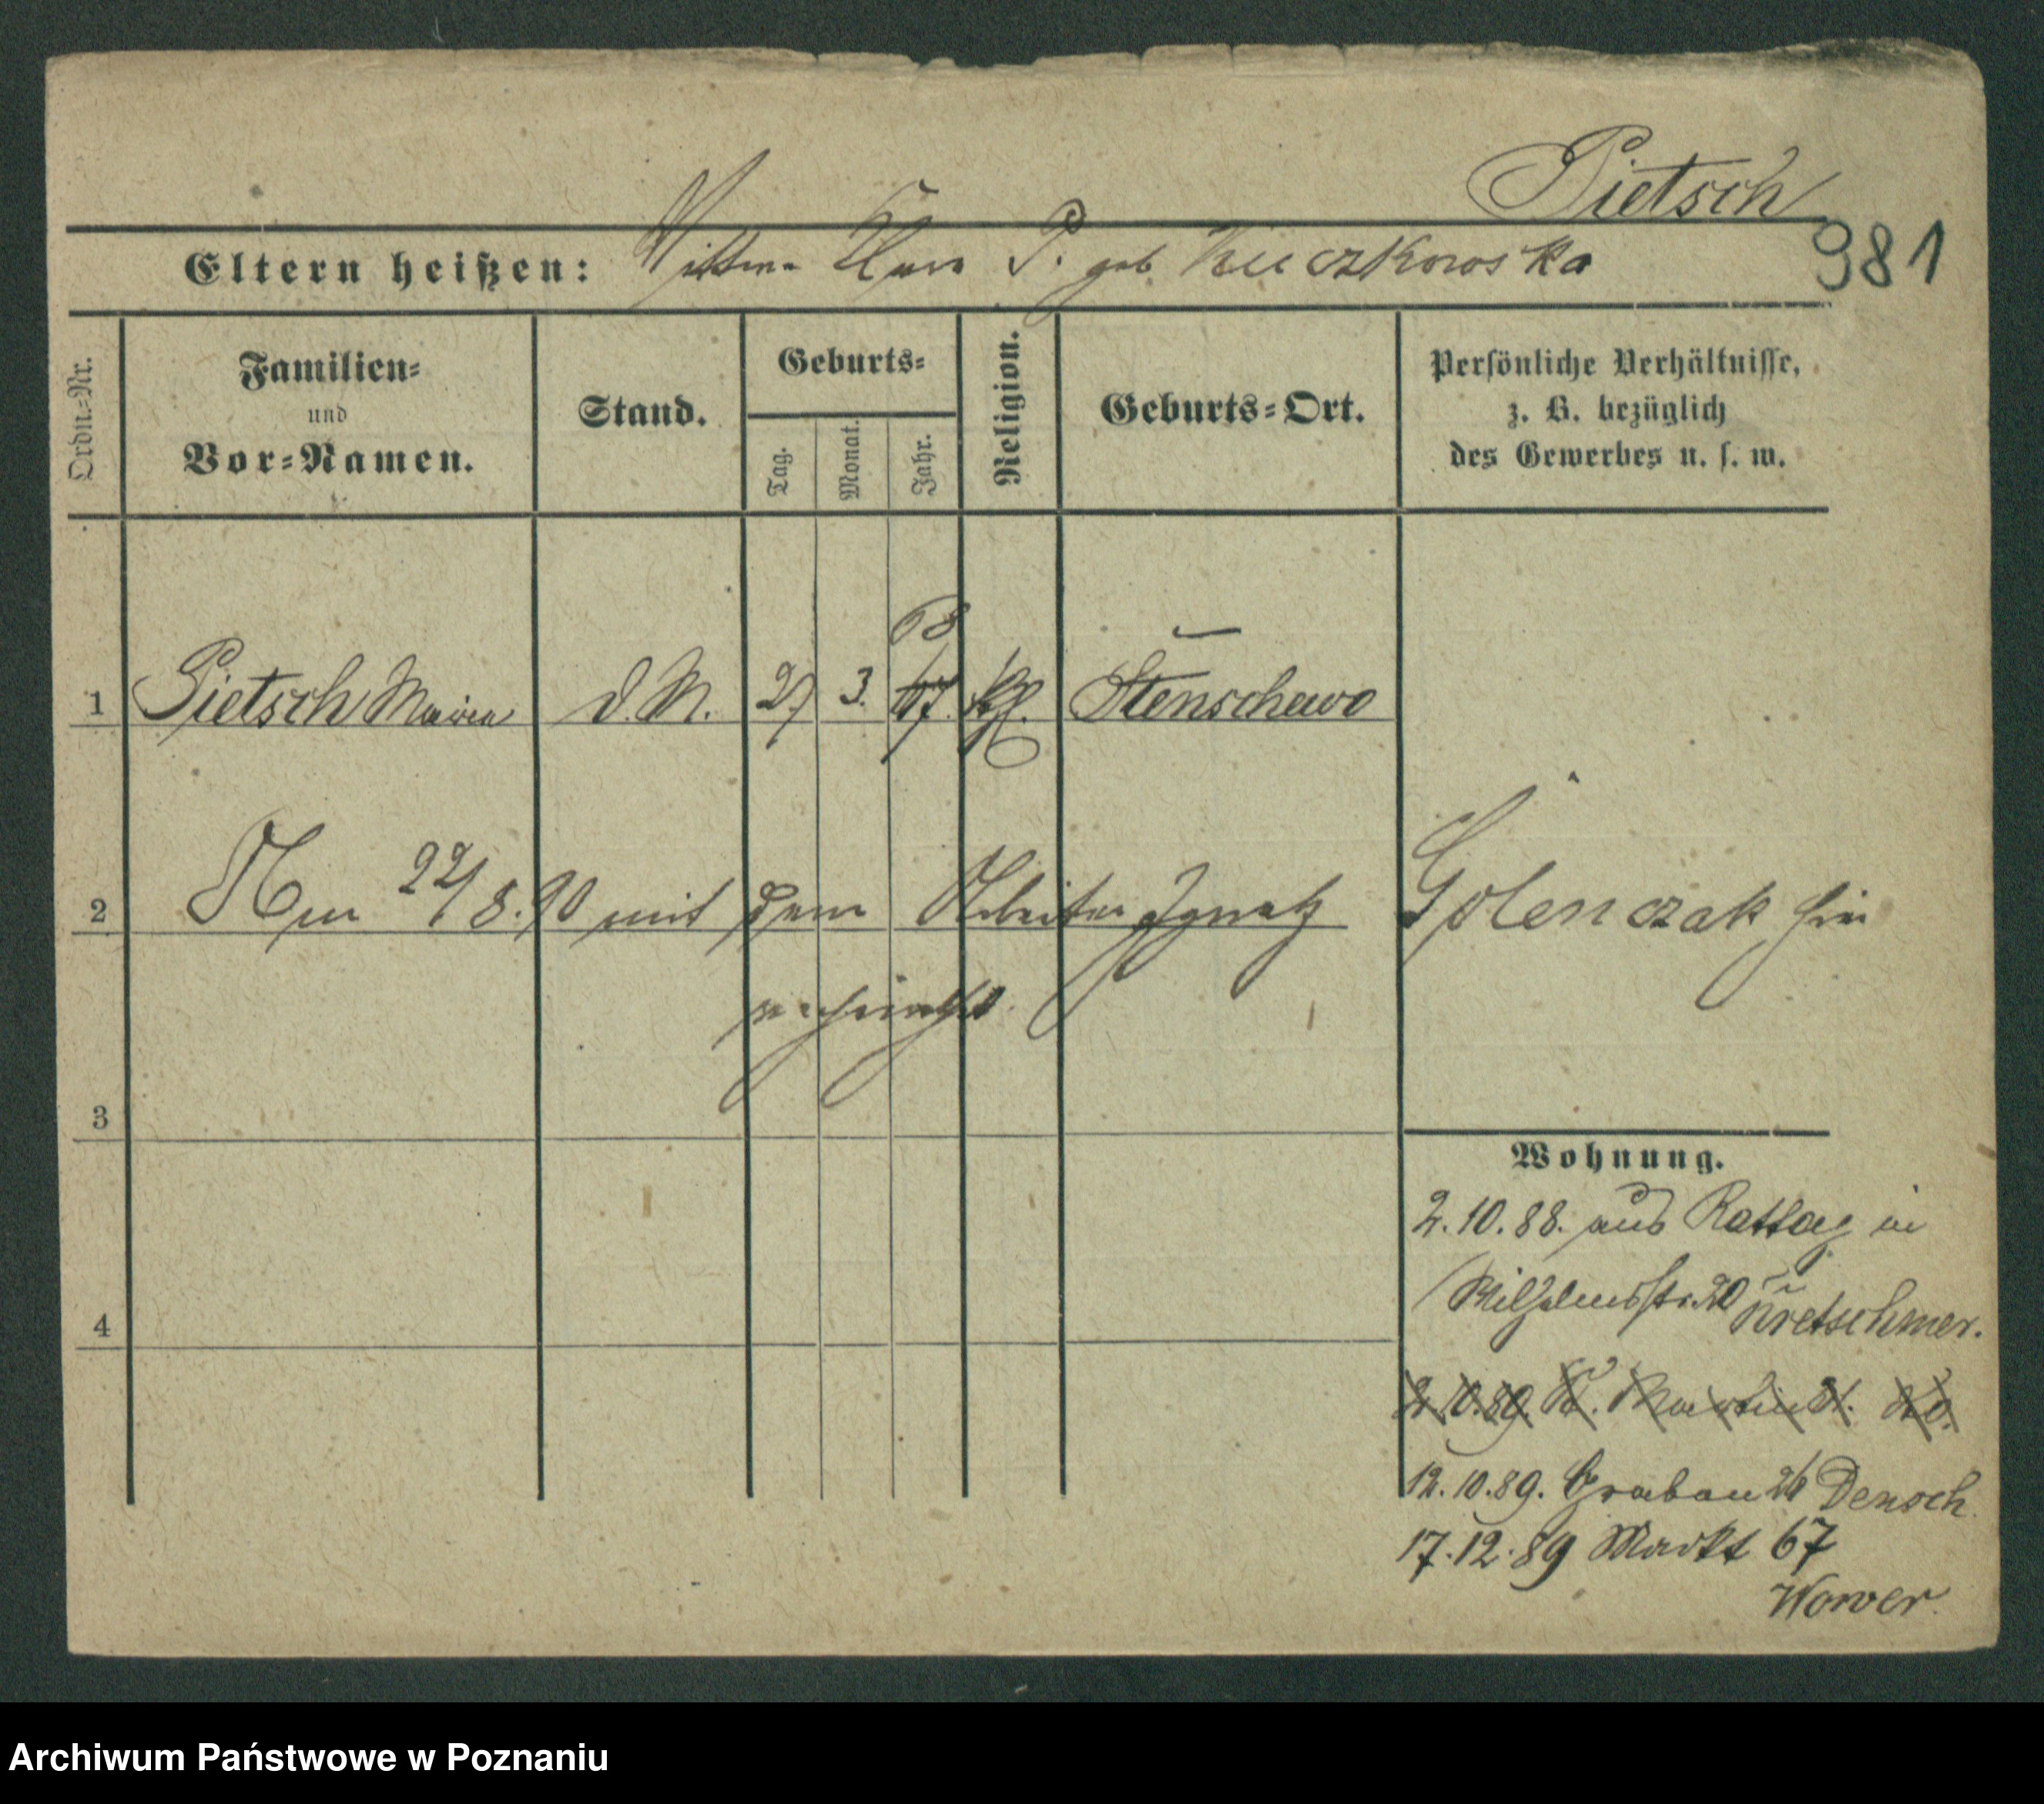 Pietsch
981
Eltern heißen: Wittwe P. geb. Kuczkowska
Ordn.-Nr.
Familien-
und
Vor-Namen.
Stand.
Geburts-
Tag.
Monat.
Jahr.
Religion.
Geburts-Ort.
Persönliche Verhältnisse,
z. B. bezüglich
des Gewerbes u. s. w.
68
1 Pietsch Maria d. M. 27 3. 67. kth. Stenschewo
2 Am 22/8.90 mit dem Arbeiter Ignatz Golenczak hier
verheirathet.
3
4
Wohnung.
2.10.88. aus Rattay in
Wilhelmstr. 20 Kretschmer.
2.10.89. St. Martin St.
12.10.89. Graben 26 Densch
17.12.89 Markt 67
Wower.
Archiwum Państwowe w Poznaniu